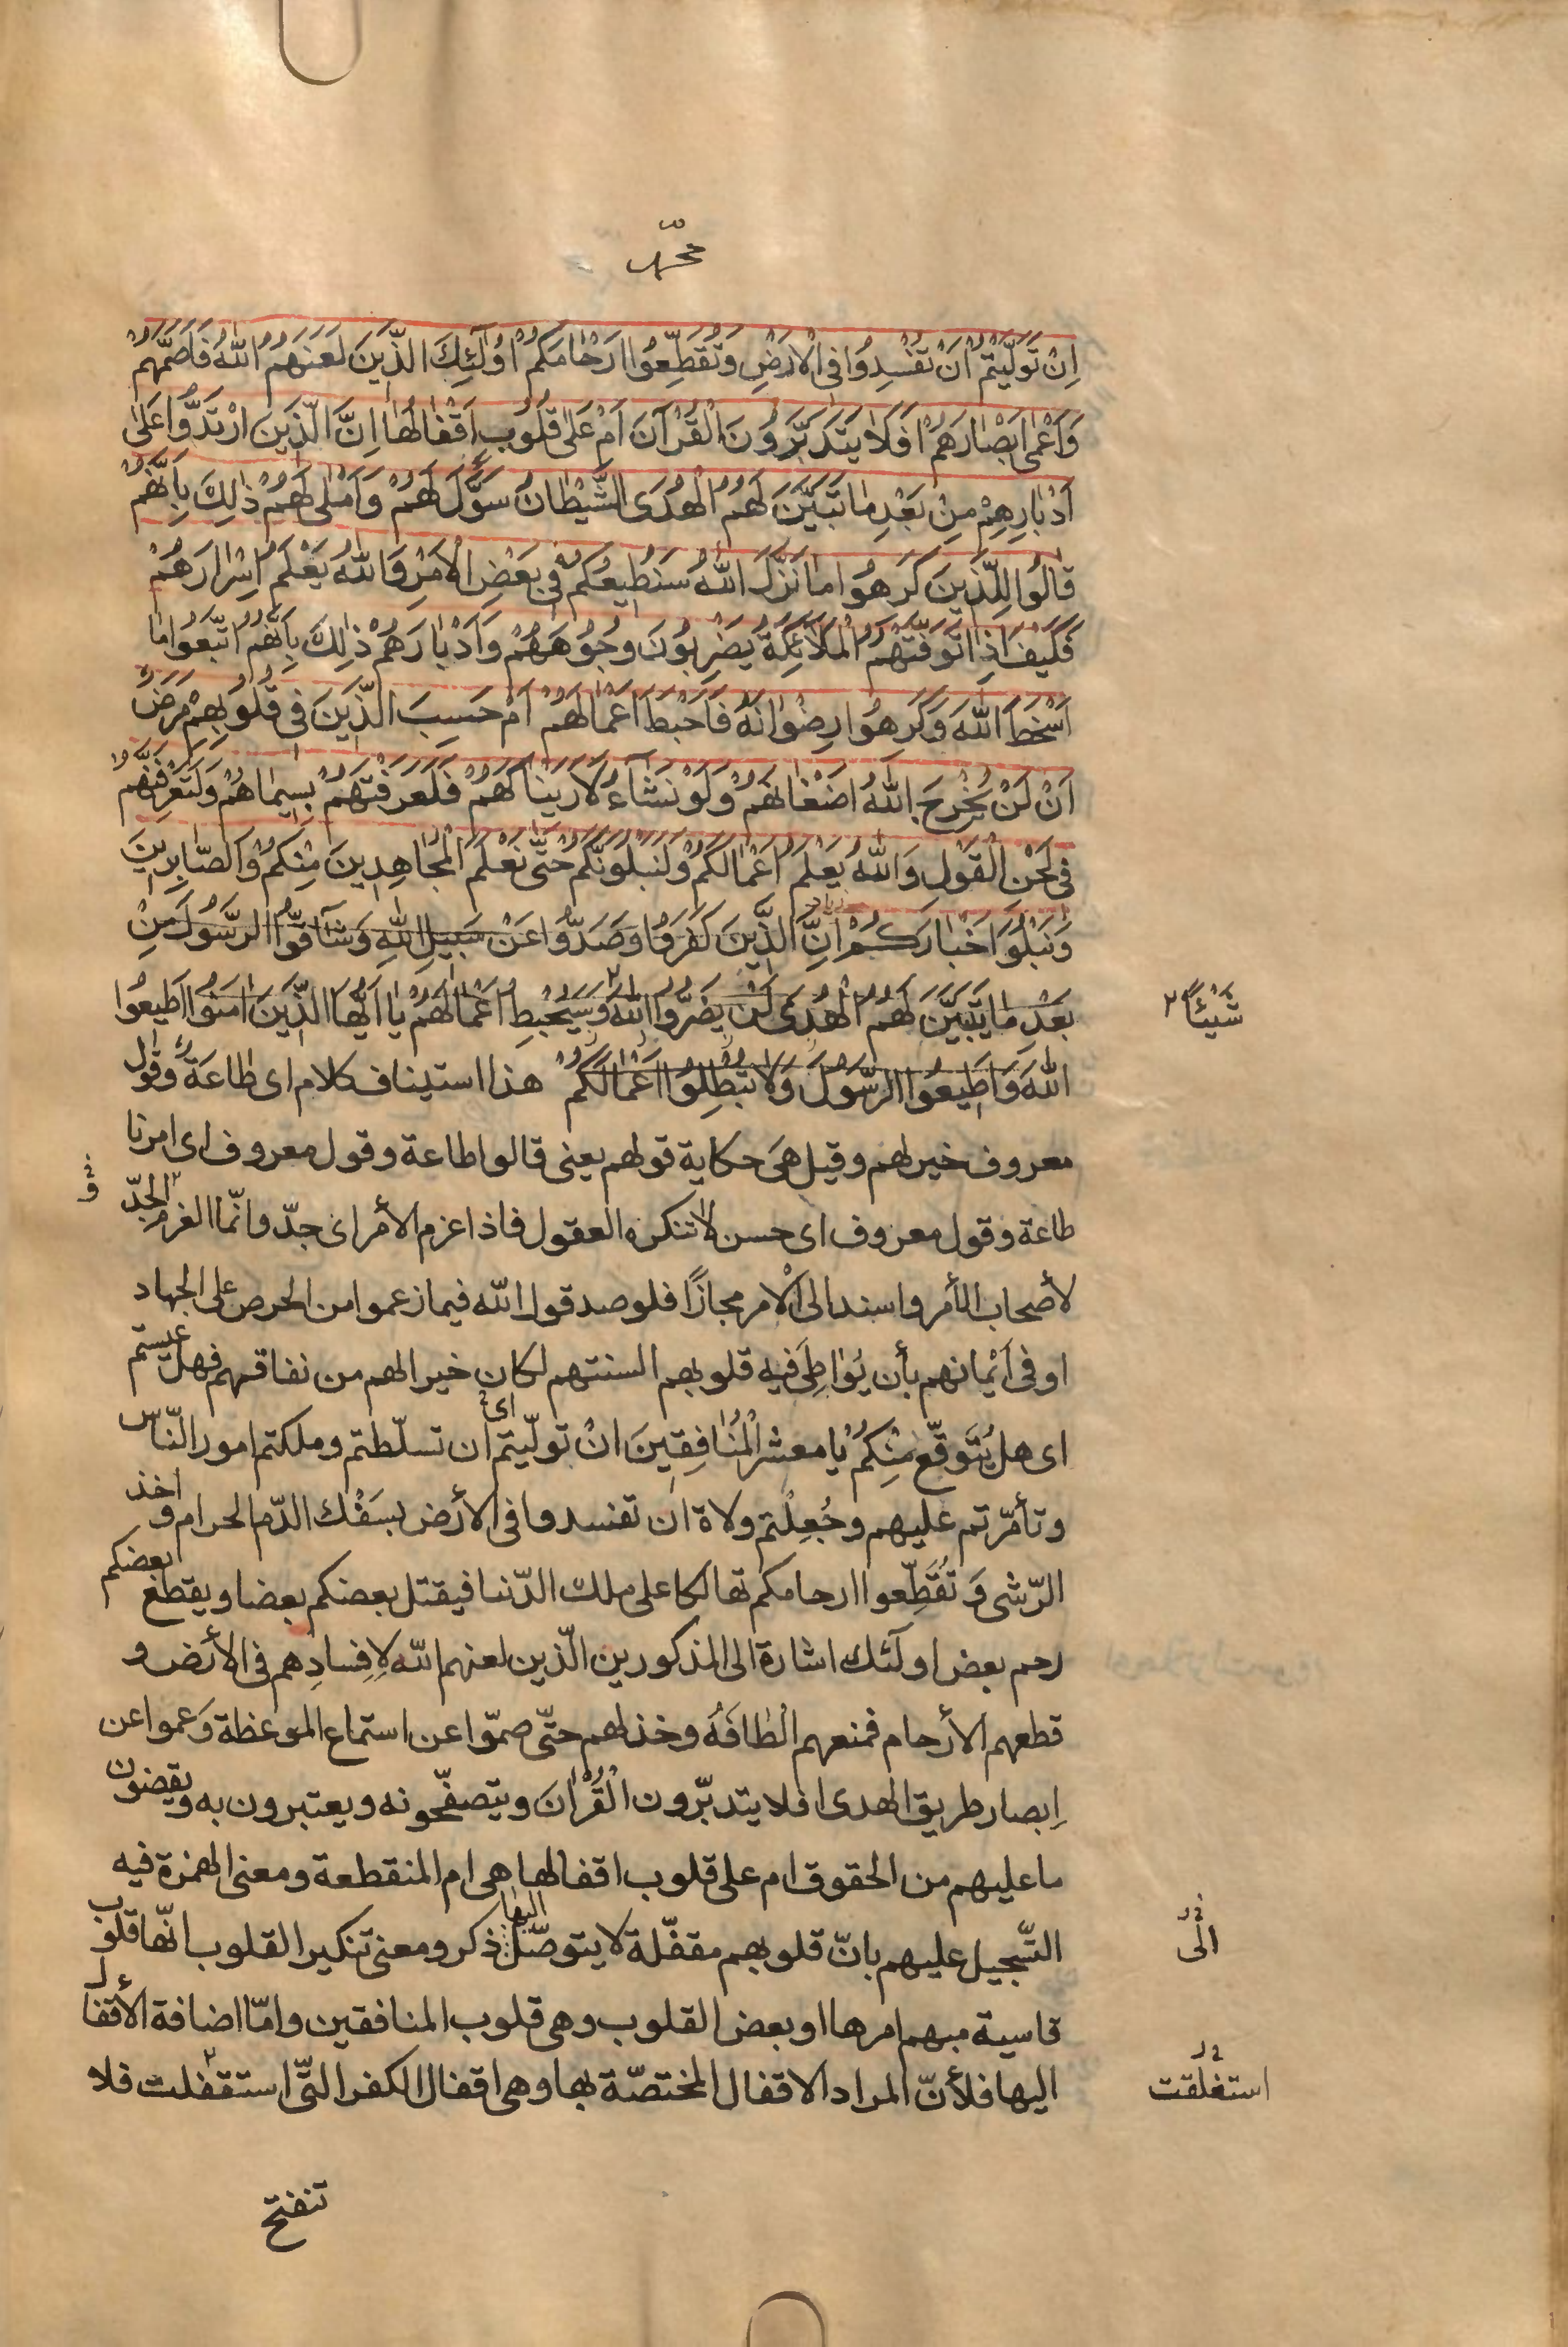 محمّد
اِنْ تَوَلَّيْتُمْ اَنْ تُفْسِدُوا فِى الْاَرْضِ وَتُقَطِّعُوا اَرْحٰامَكُمْ اُولٰٓئِكَ الَّذِينَ لَعَنَهُمُ اللّٰهُ فَاَصَمَّهُمْ
وَاَعْمٰى اَبْصٰارَهُمْ اَفَلَا يَتَدَبَّرُونَ الْقُرْآنَ اَمْ عَلٰى قُلُوبٍ اَقْفٰالُهٰا اِنَّ الَّذِينَ ارْتَدُّوا عَلٰى
اَدْبٰارِهِمْ مِنْ بَعْدِ مٰا تَبَيَّنَ لَهُمُ الْهُدَى الشَّيْطٰانُ سَوَّلَ لَهُمْ وَاَمْلٰى لَهُمْ ذٰلِكَ بِاَنَّهُمْ
قٰالُوا لِلَّذِينَ كَرِهُوا مٰا نَزَّلَ اللّٰهُ سَنُطِيعُكُمْ فِى بَعْضِ الْاَمْرِ وَاللّٰهُ يَعْلَمُ اِسْرٰارَهُمْ
فَكَيْفَ اِذٰا تَوَفَّتْهُمُ الْمَلٰٓائِكَةُ يَضْرِبُونَ وُجُوهَهُمْ وَاَدْبٰارَهُمْ ذٰلِكَ بِاَنَّهُمُ اتَّبَعُوا مٰا
اَسْخَطَ اللّٰهَ وَكَرِهُوا رِضْوٰانَهُ فَاَحْبَطَ اَعْمٰالَهُمْ اَمْ حَسِبَ الَّذِينَ فِى قُلُوبِهِمْ مَرَضٌ
اَنْ لَنْ يُخْرِجَ اللّٰهُ اَضْغٰانَهُمْ وَلَوْ نَشٰٓاءُ لَاَرَيْنٰاكَهُمْ فَلَعَرَفْتَهُمْ بِسِيمٰاهُمْ وَلَتَعْرِفَنَّهُمْ
فِى لَحْنِ الْقَوْلِ وَاللّٰهُ يَعْلَمُ اَعْمٰالَكُمْ وَلَنَبْلُوَنَّكُمْ حَتّٰى نَعْلَمَ الْمُجٰاهِدِينَ مِنْكُمْ وَالصّٰابِرِينَ
وَنَبْلُوَ اَخْبٰارَكُمْ اِنَّ الَّذِينَ كَفَرُوا وَصَدُّوا عَنْ سَبِيلِ اللّٰهِ وَشٰٓاقُّوا الرَّسُولَ مِنْ
بَعْدِ مٰا تَبَيَّنَ لَهُمُ الْهُدٰى لَنْ يَضُرُّوا اللّٰهَ وَسَيُحْبِطُ اَعْمٰالَهُمْ يٰا اَيُّهَا الَّذِينَ اٰمَنُوا اَطِيعُوا
شَيْئًا
اللّٰهَ وَاَطِيعُوا الرَّسُولَ وَلَا تُبْطِلُوا اَعْمٰالَكُمْ هذا استيناف كلام اى طاعَةٌ وقول
معروف خير لهم وقيل هَى حكاية قولهم يعنى قالوا طاعة وقول معروف اى امرنا
طاعة وقول معروف اى حسن لا تنكره العقول فاذا عزم الأمر اى جدّ وانّما العزم والجدّ
لأصحاب الأمر واسند الى الْامر مجازًا فلو صدقوا اللّه فيما زعموا من الحرص على الجهاد
او فى اَيْمانهم بأن يُوٰاطِىَ فيه قلوبهم السنتهم لكان خيرا لهم من نفاقهم فهل عسيتم
اى هل يُتَوقّع مِنْكُمْ يٰا معشر الْمُنٰافِقِينَ انْ تولّيتم اى ان تسلّطتم وملكتم امور النّاس
وتأمّرتم عليهم وجُعِلْتم ولاة ان تفسدوا فى الأرض بسَفْك الدّم الحرام واخذ
الرّشى وَتُقَطِّعوا ارحامكم تهالكا على ملك الدّنيا فيقتل بعضكم بعضا ويقطع بعضكم
رحم بعض اولٓئك اشارة الى المذكورين الّذين لعنهم اللّه لِاِفسادِهم فى الأرض و
قطعهم الأرحام فمنعهم الْطٰافَهُ وخذلهم حتّى صمّوا عن استماع الموعظة وَعموا عن
اِبصار طريق الهدى افلا يتدبّرون الْقُرْاٰنَ ويتصفّحونه ويعتبرون به ويقضون
ما عليهم من الحقوق ام على قلوب اقفالها هى ام المنقطعة ومعنى الهمزة فيه
التّسجيل عليهم بانّ قلوبهم مقفّلة لا يتوصّل اليها ذكر ومعنى تنكير القلوب انّها قلوب
الى
قاسية مبهم امرها او بعض القلوب وهى قلوب المنافقين وامّا اضافة الأقفال
اليها فلأنّ المراد الاقفال المختصّة بها وهى اقفال الكفر الّتى استقفلت فلا
استغلقت
تنفتح